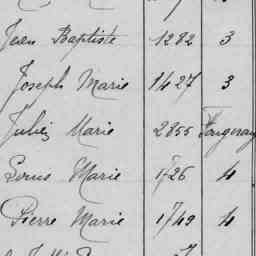 Jean Baptiste 1282 3
Joseph Marie 1427 3
Julien Marie 2855 Fougeray
Louis Marie 1726 4
Pierre Marie 1749 4